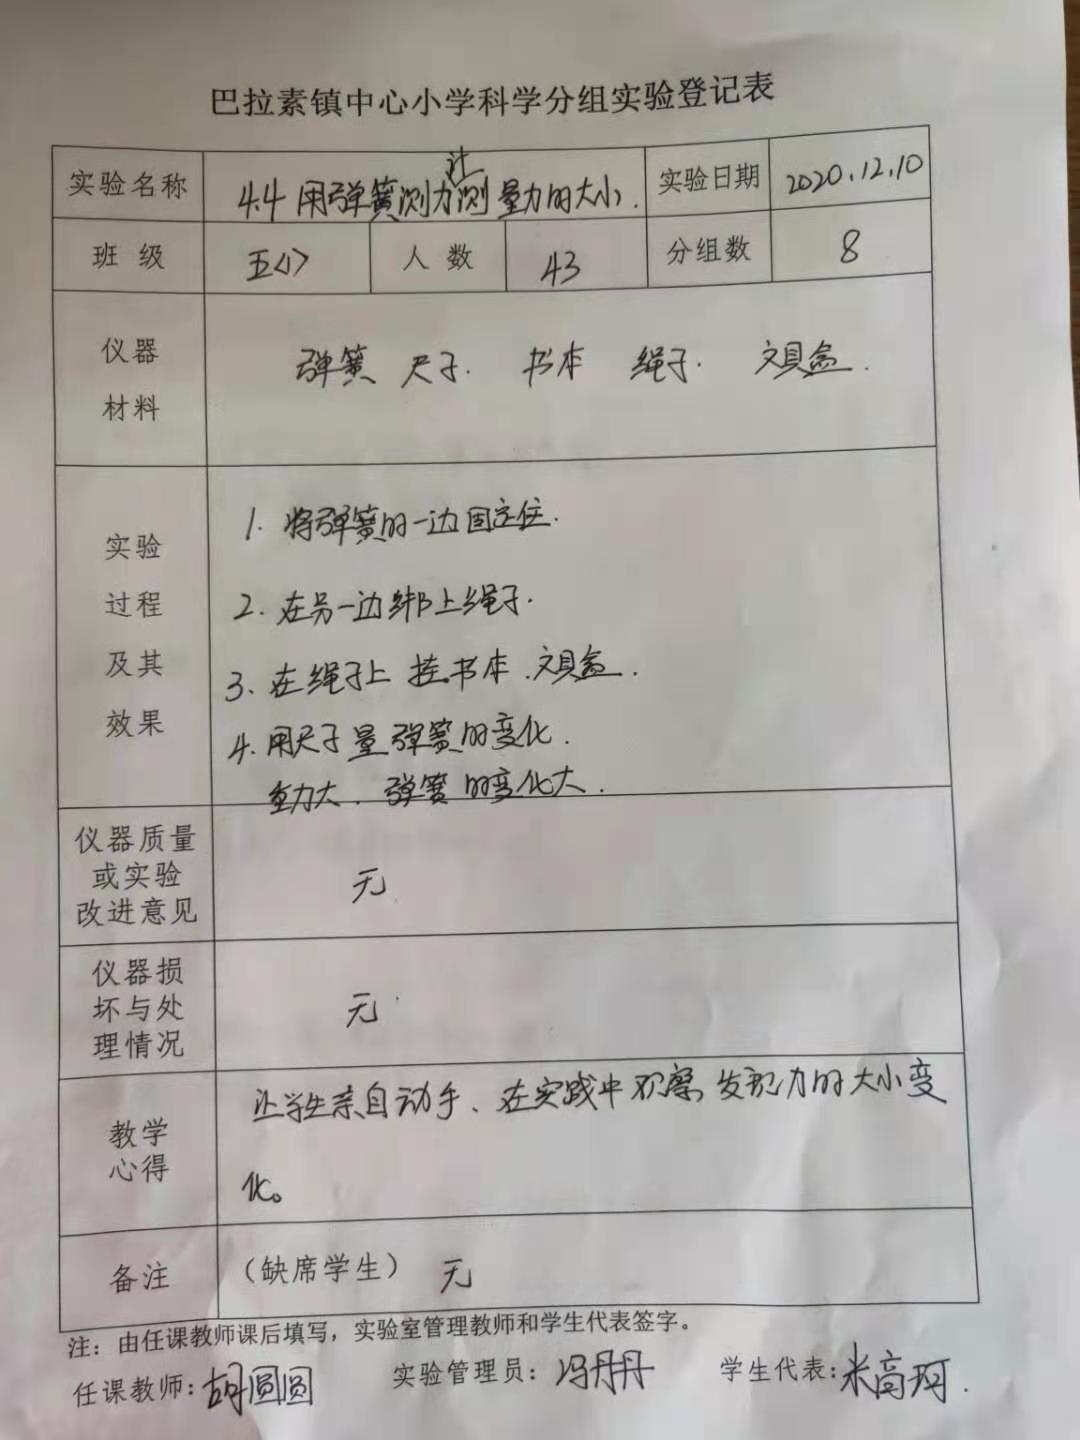 巴拉素镇中心小学科学分组实验登记表
实验名称 4.4 用弹簧测力计测量力的大小. 实验日期 2020.12.10
班 级 五<1> 人 数 43 分组数 8
仪器
材料
弹簧 尺子. 书本 绳子. 文具盒.
实验
过程
及其
效果
1. 将弹簧的一边固定住.
2. 在另一边绑上绳子.
3. 在绳子上挂书本.文具盒.
4. 用尺子量弹簧的变化.
重力大.弹簧的变化大.
仪器质量
或实验
改进意见
无
仪器损
坏与处
理情况
无
教学
心得
让学生亲自动手、在实践中观察,发现力的大小变
化。
备注 (缺席学生) 无
注：由任课教师课后填写，实验室管理教师和学生代表签字。
任课教师:胡圆圆 实验管理员：冯丹丹 学生代表:米高珂.